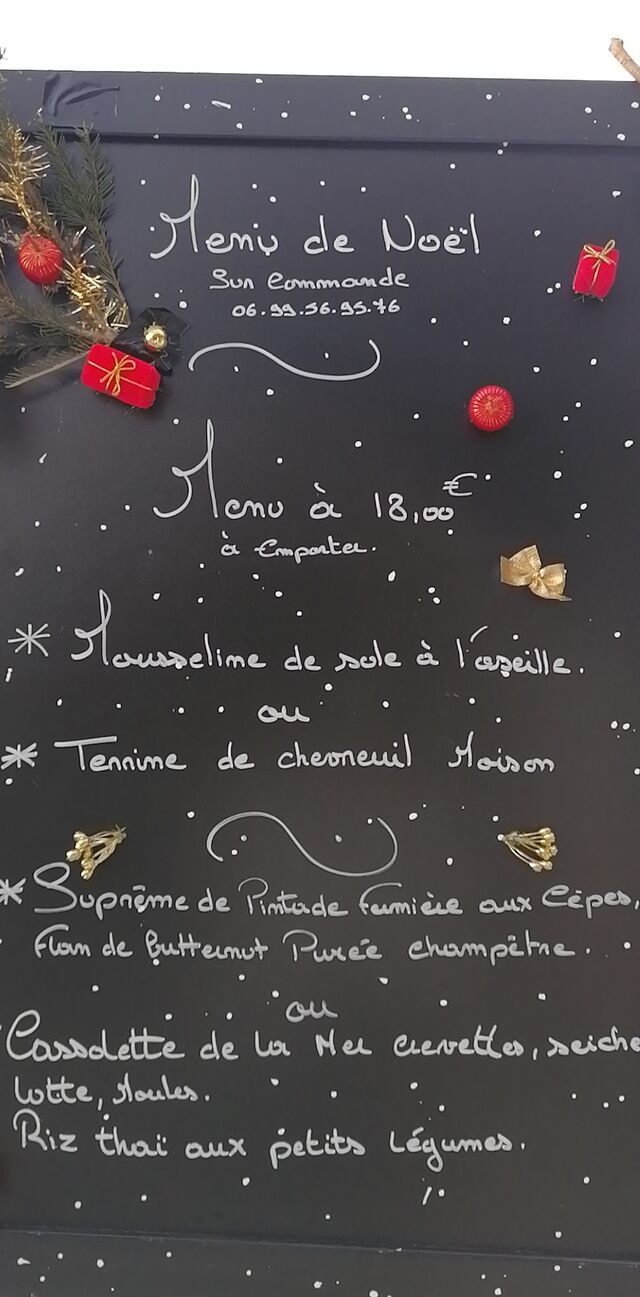 Menu de Noël
Sur Commande
06.99.56.95.76
Menu à 18,00€
à Emporter.
* Mousseline de sole à l'oseille.
ou
* Terrine de chevreuil Maison
* Suprême de Pintade fermière aux Cèpes,
Flan de butternut Purée champêtre.
ou
Cassolette de la Mer crevettes, seiche
lotte, Moules.
Riz thaï aux petits légumes.